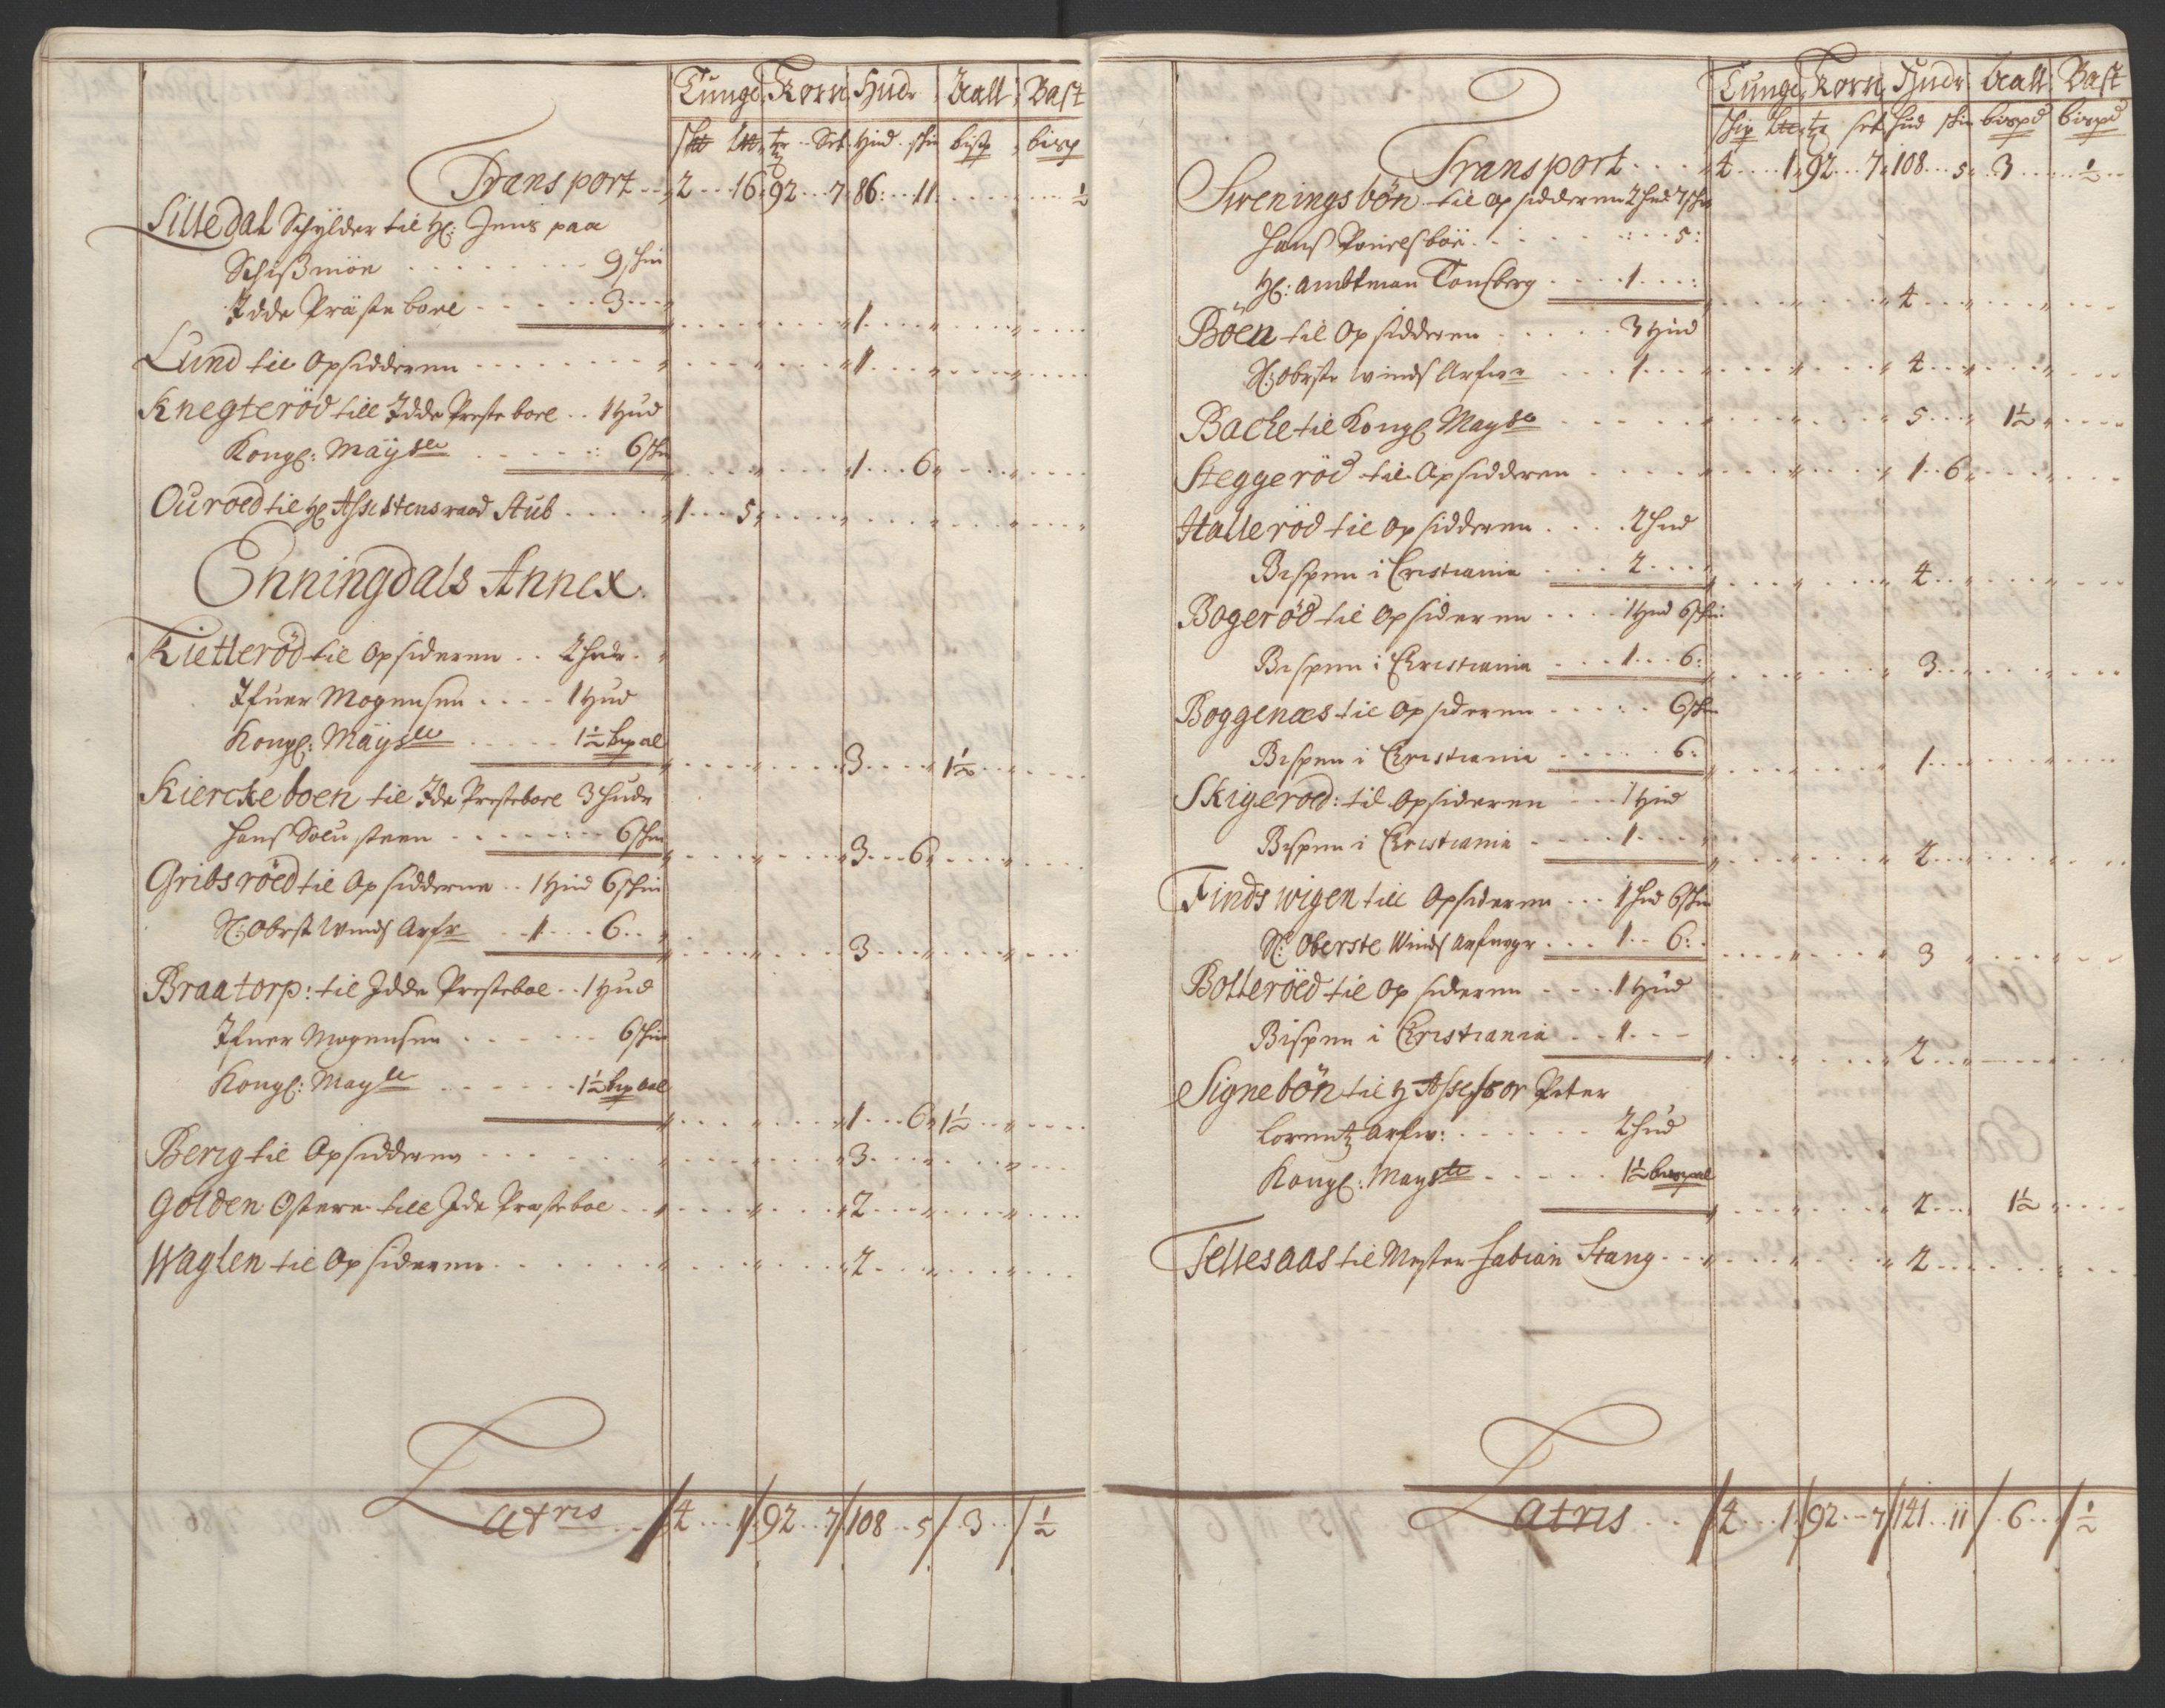 Tunge Korn Hude Aall Bast
Sk℔ L℔ tr Set Hud skin bisp bisp
Transport 2 16 92 7 86 11 ½
Lilledal Schylder til Hr: Jens paa
Schißmön 9 skin
Idde Prästeboel 3
1
Lund til Opsidderen 1
Knegteröd till Idde Presteboel 1 Hud
Kongl: Mayste 6 skin
1 6
Ouroed til Hr Assistensraad Stub 1 5
Enningdals Annex
Kietteröd til Opsideren 2 hude
Ifuer Mogensen 1 Hud
Kongl: Mayste 1½ bisp al
3 1½
Kierckeboen til Ide Presteboel 3 hude
Hans Solusteen 6 skin
3 6
Gribsröed til Opsidderne 1 Hud 6 skin
Sl: Obrst Winds Arfr 1 6
3
Braatorp: til Idde Presteboel 1 Hud
Ifuer Mogensen 6 skin
Kongl: Mayst 1½ bisp aal
1 6 1½
Berig til Opsidderen 3
Golden Östere till Ide Presteboel 2
Waglen til Opsideren 2
Latris 4 1 92 7 108 5 3 ½
Tunge Korn Hude Aall Bast
Skip L℔ tr set hud skin bispd bispd
Transport 4 1 92 7 108 5 3 ½
Sweningsbön til opsidderen 2 hud 7 skin
Hans Povelsböe 5
Hr: Ambtman Tonsberg 1
4
Böen til Opsidderen 3 Hud
Sl: Obrste Winds Arfwr 1
4
Backe til Kongl Mayst 5 1½
Steggeröd til Opsidderen 1 6
Halleröd til Opsidderen 2 hud
Bispen i Cristiania 2
4
Bogeröd til Opsideren 1 Hud 6 skin
Bispen i Christiania 1 6
3
Boggenæs til Opsideren 6 skin
Bispen i Christiania 6
1
Skigeroed: til Opsideren 1 Hud
Bispen i Christiania 1
2
Findswigen till Opsideren 1 hud 6 skin
Sl: Oberste Winds Arfuegr 1 6
3
Botteröed til Opsideren 1 Hud
Bispen i Christiania 1
2
Signebön til H Assessor Peter
Lorentz Arfw: 2 hud
Kongl: Mayste 1½ bispal
2 1½
Tellesaas til Mester Fabian Stang 2
Latris 4 1 92 7 141 11 6 ½